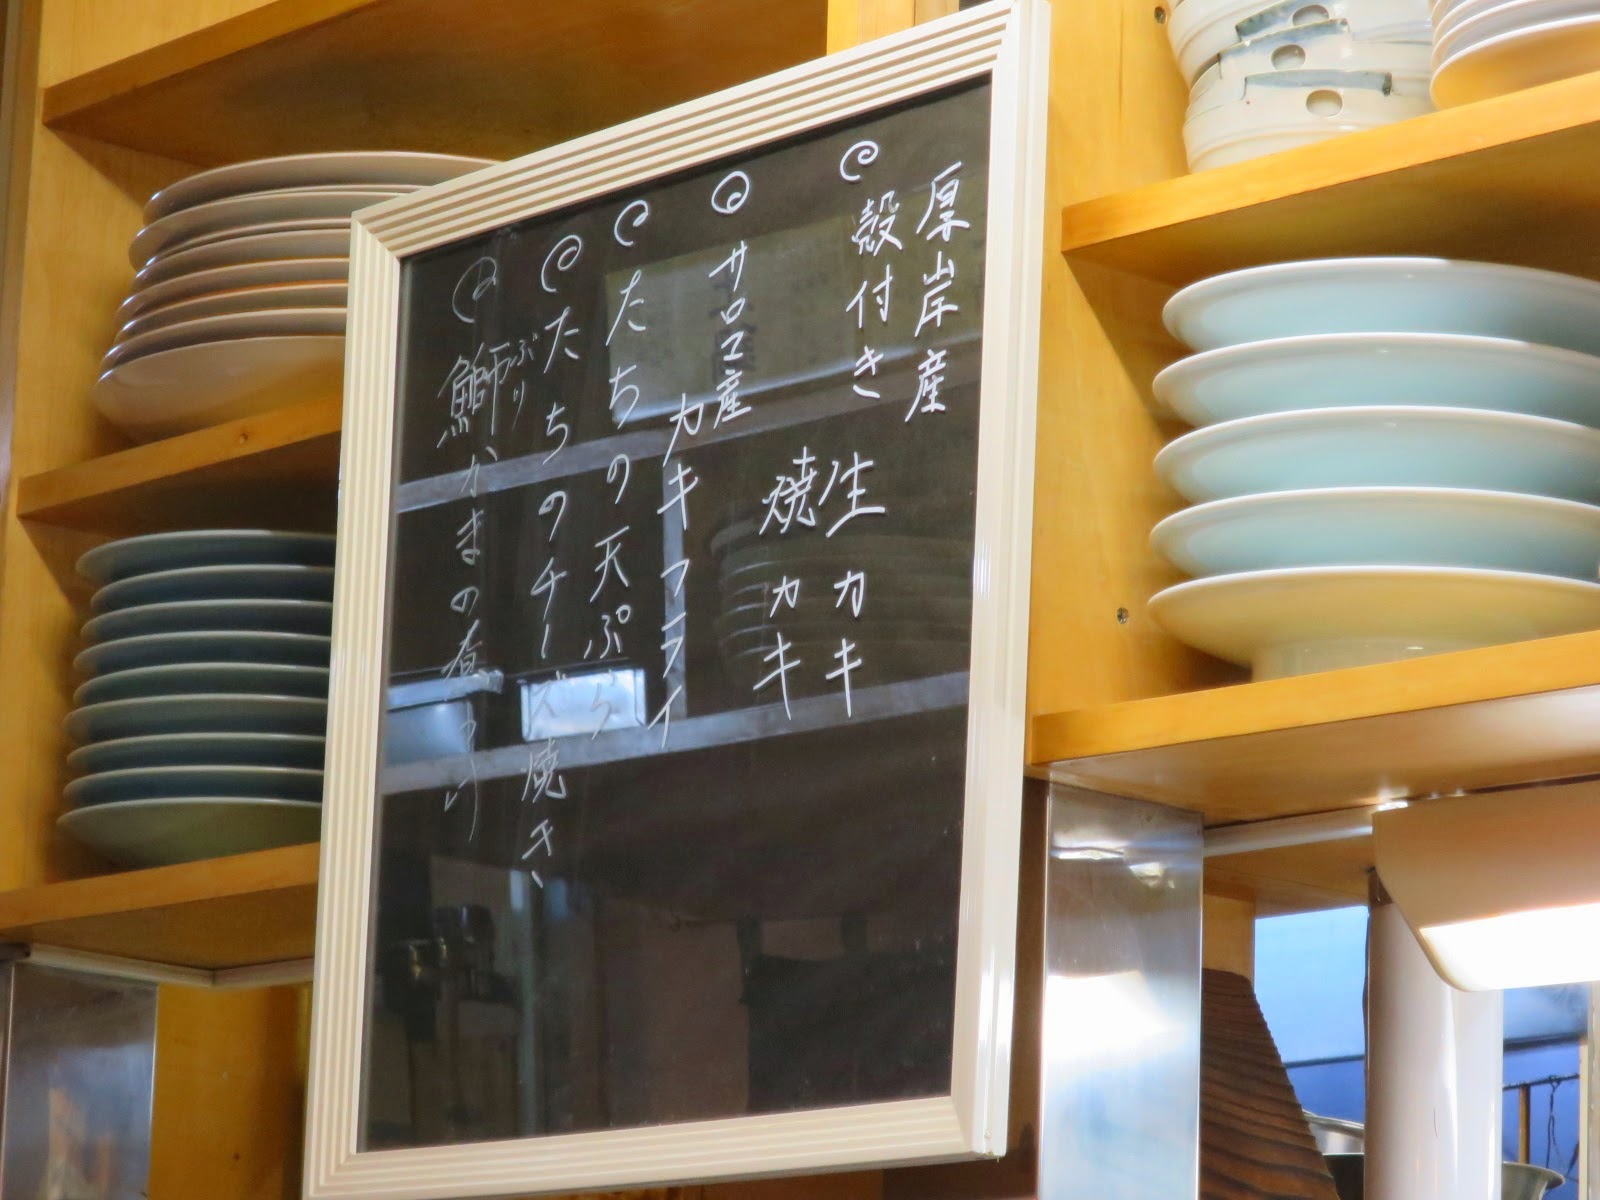 厚岸産
殻付き 生カキ
焼カキ
サロマ産
カキフライ
たちの天ぷら
たちのチーズ焼き
鰤かまの煮
ぶり